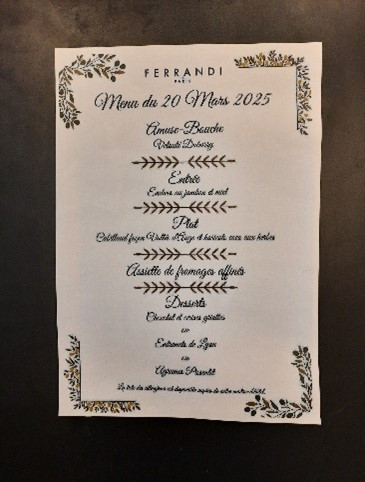 FERRANDI
PARIS
Menu du 20 Mars 2025
Amuse-Bouche
Velouté Dubarry
Entrée
Endive au jambon et miel
Plat
Cabillaud façon Vallée d'Auge et haricots coco aux herbes
Assiette de fromages affinés
Desserts
Chocolat et cerises griottes
ou
Entremets de Lyon
ou
Agrumes
La liste des allergènes est disponible auprès de notre maître d'hôtel